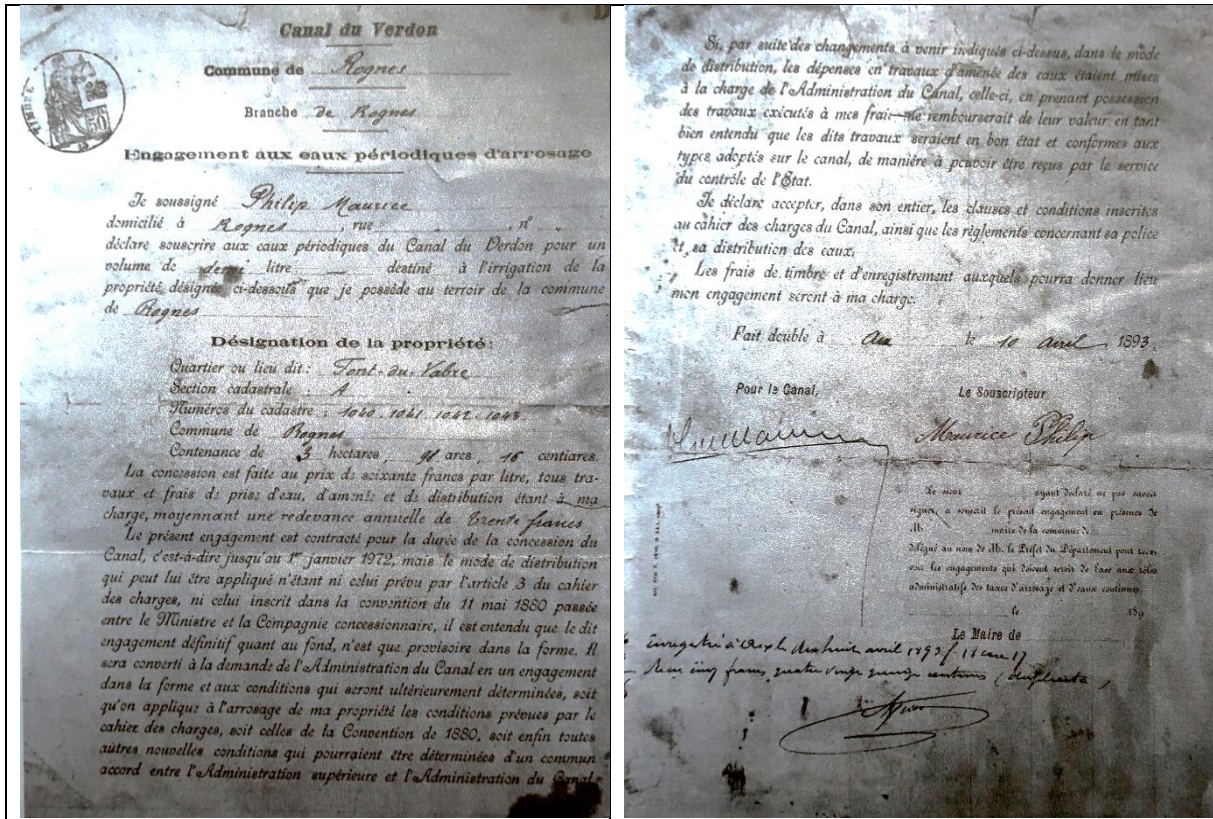 Canal du Verdon
Commune de Rognes
Branche de Rognes
50
Engagement aux eaux périodiques d'arrosage
Je soussigné Philip Maurice
domicilié à Rognes, rue „, n° „
déclare souscrire aux eaux périodiques du Canal du Verdon pour un
volume de demi litre — destiné à l'irrigation de la
propriété désignée ci-dessous que je possède au terroir de la commune
de Rognes
Désignation de la propriété:
Quartier ou lieu dit: Font-du-Vabre
Section cadastrale: A
Numéros du cadastre: 1040. 1041. 1042. 1043.
Commune de Rognes
Contenance de 3 hectares, 91 ares, 16 centiares.
La concession est faite au prix de soixante francs par litre, tous tra-
vaux et frais de prise d'eau, d'amenée et de distribution étant à ma
charge, moyennant une redevance annuelle de trente francs
Le présent engagement est contracté pour la durée de la concession du
Canal, c'est-à-dire jusqu'au 1er janvier 1972, mais le mode de distribution
qui peut lui être appliqué n'étant ni celui prévu par l'article 3 du cahier
des charges, ni celui inscrit dans la convention du 11 mai 1880 passée
entre le Ministre et la Compagnie concessionnaire, il est entendu que le dit
engagement définitif quant au fond, n'est que provisoire dans la forme. Il
sera converti à la demande de l'Administration du Canal en un engagement
dans la forme et aux conditions qui seront ultérieurement déterminées, soit
qu'on applique à l'arrosage de ma propriété les conditions prévues par le
cahier des charges, soit celles de la Convention de 1880, soit enfin toutes
autres nouvelles conditions qui pourraient être déterminées d'un commun
accord entre l'Administration supérieure et l'Administration du Canal.
Si, par suite des changements à venir indiqués ci-dessus, dans le mode
de distribution, les dépenses en travaux d'amenée des eaux étaient mises
à la charge de l'Administration du Canal, celle-ci, en prenant possession
des travaux exécutés à mes frais me rembourserait de leur valeur en tant
bien entendu que les dits travaux seraient en bon état et conformes aux
types adoptés sur le canal, de manière à pouvoir être reçus par le service
du contrôle de l'État.
Je déclare accepter, dans son entier, les clauses et conditions inscrites
au cahier des charges du Canal, ainsi que les règlements concernant sa police
et sa distribution des eaux.
Les frais de timbre et d'enregistrement auxquels pourra donner lieu
mon engagement seront à ma charge.
Fait double à Aix le 10 avril 1893.
Pour le Canal,
Le Souscripteur
Maurice Philip
Le sieur ayant déclaré ne pas savoir
signer, a souscrit le présent engagement en présence de
M. maire de la commune de
délégué au nom de M. le Préfet du Département pour rece-
voir les engagements qui doivent servir de base aux rôles
administratifs des taxes d'arrosage et d'eaux continues.
le 189
Le Maire de
Enregistré à Aix le dix huit avril 1893
cinq francs quatre vingt quinze centimes (duplicata)